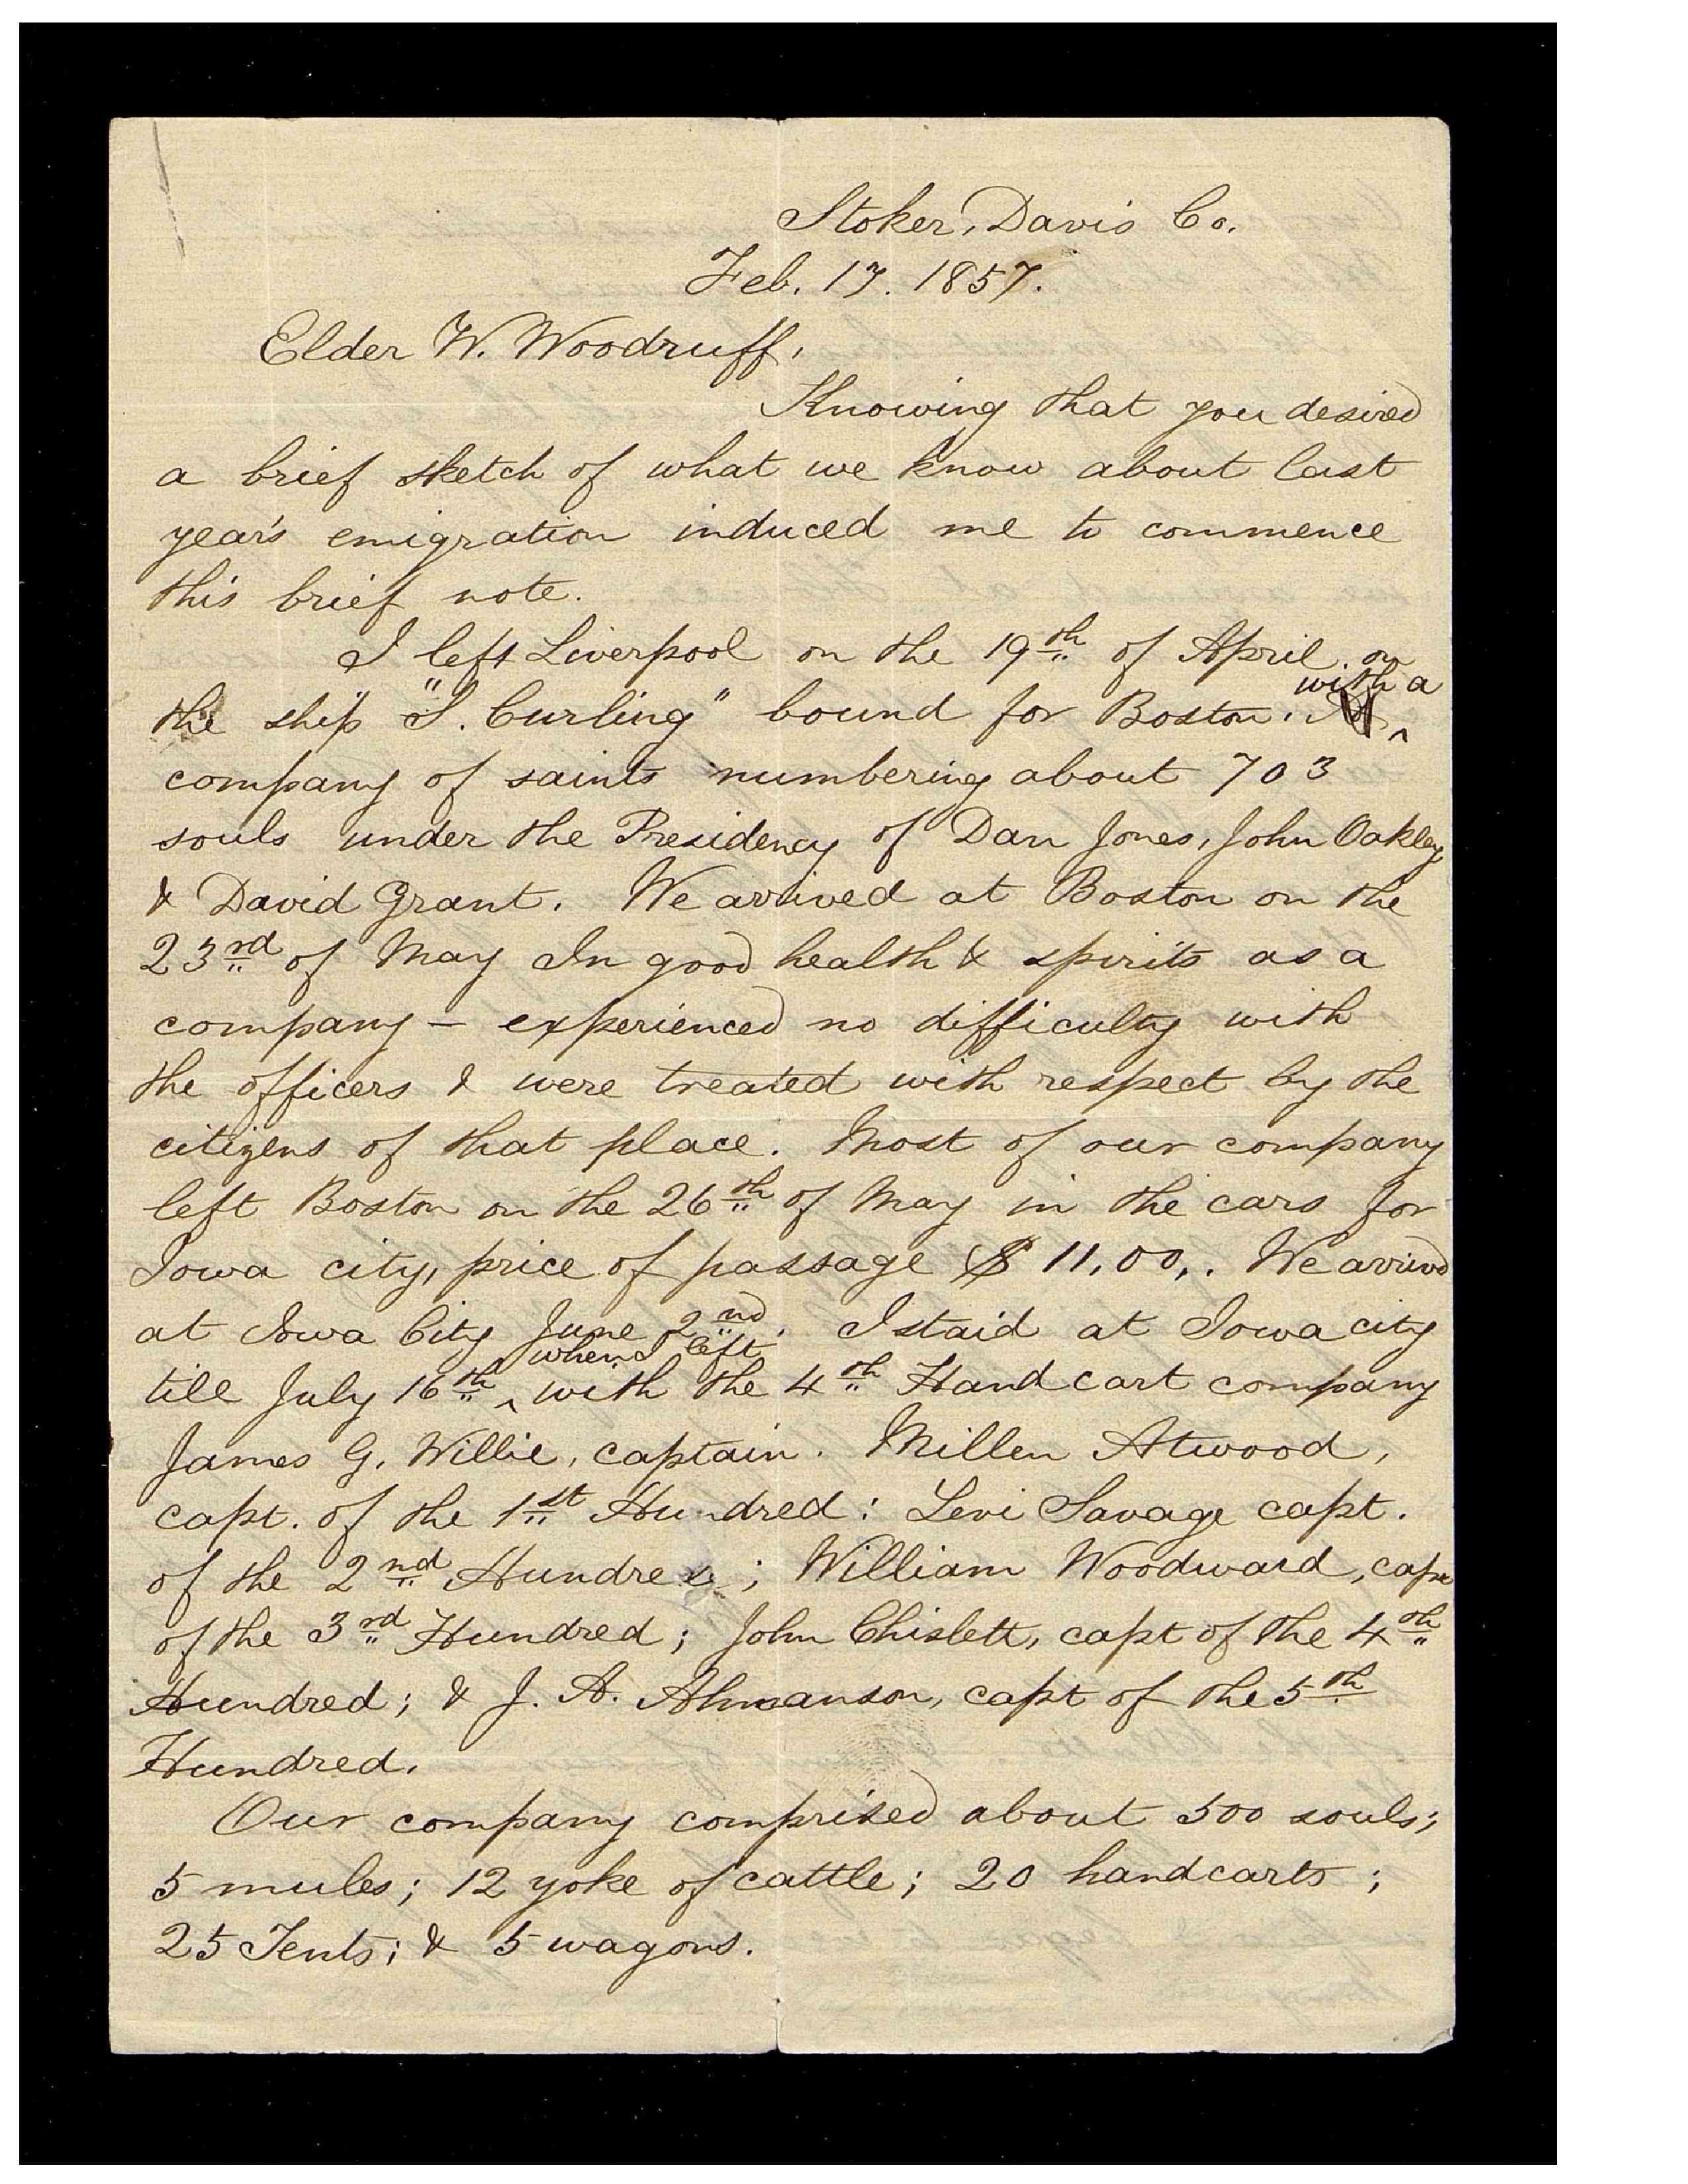 Stoker, Davis Co.
Feb. 17. 1857.
Elder W. Woodruff,
Knowing that you desired
a brief sketch of what we know about last
year's emigration induced me to commence
this brief note.
I left Liverpool on the 19th of April. on
the ship "S. Curling" bound for Boston. with a
company of saints numbering about 703
souls under the Presidency of Dan Jones, John Oakley,
& David Grant. We arrived at Boston on the
23rd of May In good health & spirits as a
company – experienced no difficulty with
the officers & were treated with respect by the
citizens of that place. Most of our company
left Boston on the 26th of May in the cars for
Iowa city, price of passage $ 11,00,. We arrived
at Iowa City June 2nd. I staid at Iowa city
till July 16th ‸ when I left with the 4th Hand cart company
James G. Willie, captain. Millen Atwood,
capt. of the 1st Hundred: Levi Savage capt.
of the 2nd Hundred; William Woodward, capt
of the 3rd Hundred; John Chislett, capt of the 4th
Hundred; & J. A. Ahmanson, capt of the 5th
Hundred.
Our company comprised about 500 souls;
5 mules; 12 yoke of cattle; 20 handcarts;
25 Tents; & 5 wagons.